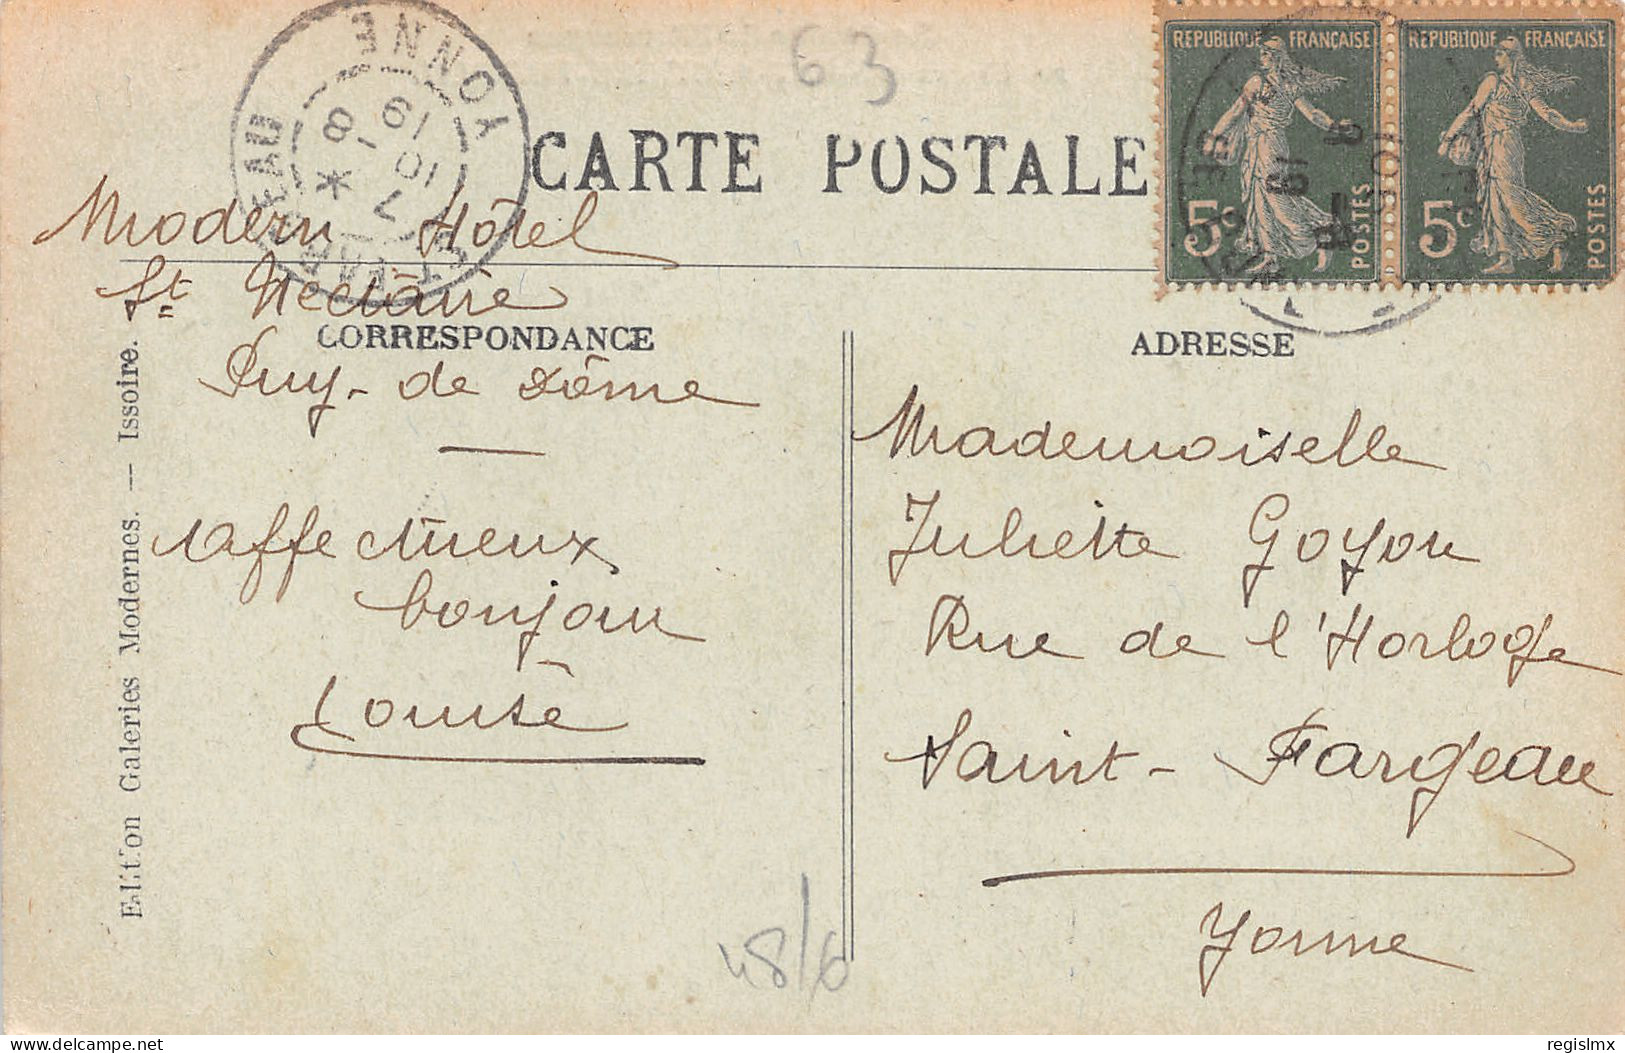 63
YONNE
ST FARGEAU
7 10
-8
19
*
CARTE POSTALE
REPUBLIQUE FRANÇAISE
5c
POSTES
REPUBLIQUE FRANÇAISE
5c
POSTES
Modern Hôtel
St Nectaire
CORRESPONDANCE
Puy-de Dôme
Affectueux
bonjour
Louise
ADRESSE
Mademoiselle
Juliette Goyon
Rue de l'Horloge
Saint-Fargeau
Yonne
48/6
Edition Galeries Modernes. — Issoire.
delcampe.net
regislmx